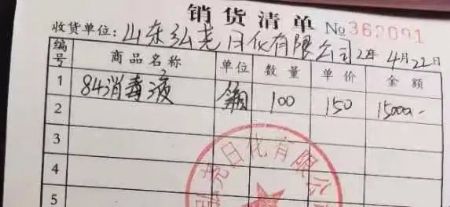 销货清单 №362091
收货单位：山东弘亮日化有限公司 年4月22日
编号 商品名称 单位 数量 单价 金额
1 84消毒液 箱 100 150 15000-
2
3
4
5
亮日化有限公